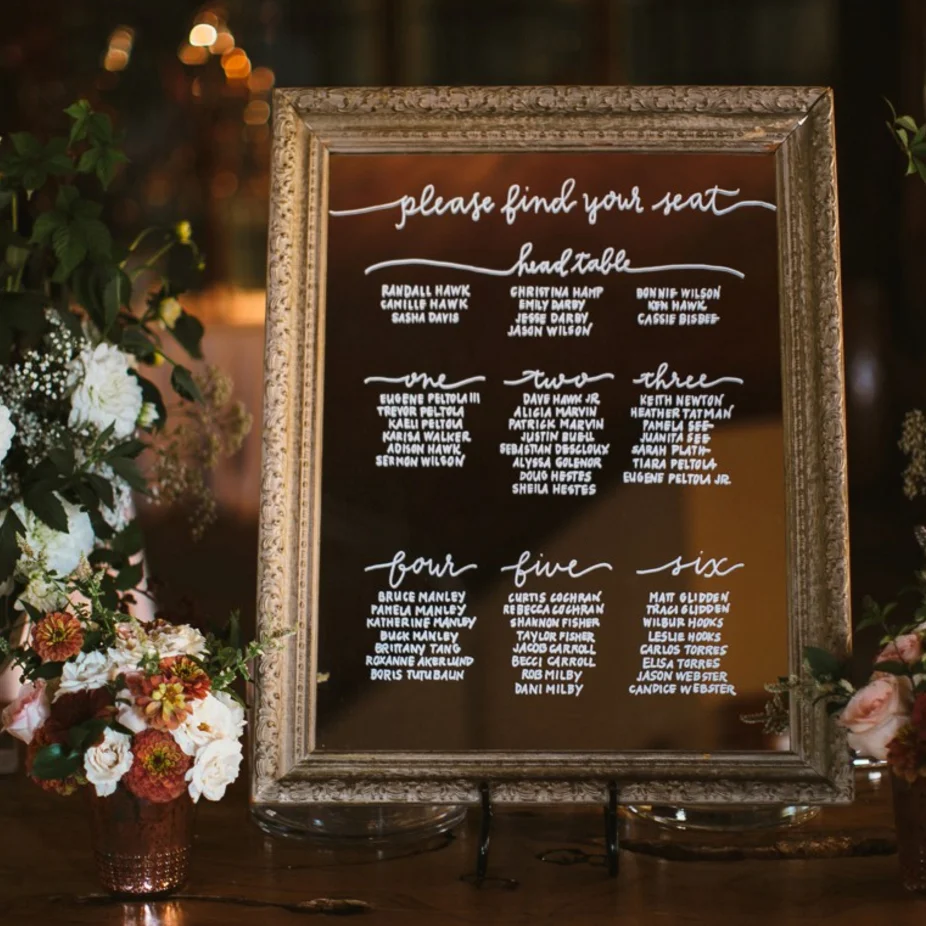 please find your seat
head table
RANDALL HAWK
CAMILLE HAWK
SASHA DAVIS
CHRISTINA HAMP
EMILY DARBY
JESSE DARBY
JASON WILSON
BONNIE WILSON
KEN HAWK
CASSIE BISBEE
one
EUGENE PELTOLA III
TREVOR PELTOLA
KAELI PELTOLA
KARISA WALKER
ADISON HAWK
SERMON WILSON
two
DAVE HAWK JR
ALICIA MARVIN
PATRICK MARVIN
JUSTIN BUELL
SEBASTIAN DESCLOUX
ALYSSA GOLENOR
DOUG HESTES
SHEILA HESTES
three
KEITH NEWTON
HEATHER TATMAN
PAMELA SEE
JUANITA SEE
SARAH PLATH
TIARA PELTOLA
EUGENE PELTOLA JR.
four
BRUCE MANLEY
PAMELA MANLEY
KATHERINE MANLEY
BUCK MANLEY
BRITTANY TANG
ROXANNE AKERLUND
BORIS TUTUBALIN
five
CURTIS COCHRAN
REBECCA COCHRAN
SHANNON FISHER
TAYLOR FISHER
JACOB CARROLL
BECCI CARROLL
ROB MILBY
DANI MILBY
six
MATT GLIDDEN
TRACI GLIDDEN
WILBUR HOOKS
LESLIE HOOKS
CARLOS TORRES
ELISA TORRES
JASON WEBSTER
CANDICE WEBSTER